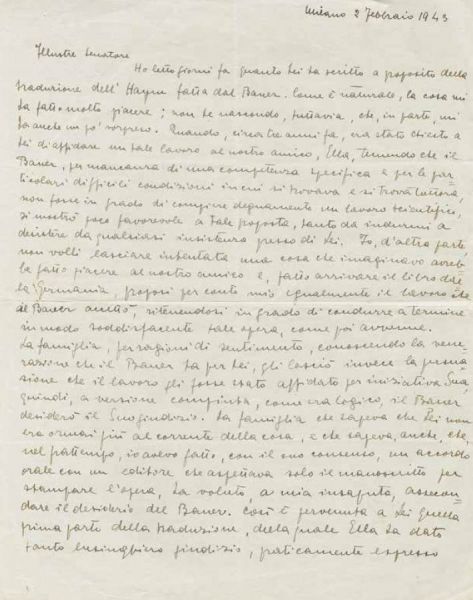 Milano 2 Febbraio 1943
Illustre Senatore
Ho letto giorni fa quanto Lei ha scritto a proposito della
traduzione dell'Haym fatta dal Baner. Come è naturale, la cosa mi
ha fatto molto piacere; non le nascondo, tuttavia, che, in parte, mi
ha anche un po' sorpreso. Quando, circa tre anni fa, era stato chiesto a
Lei di affidare un tale lavoro al nostro amico, Ella, temendo che il
Baner, per mancanza di una competenza specifica e per le par-
ticolari difficili condizioni in cui si trovava e si trova tuttora,
non fosse in grado di compiere degnamente un lavoro scientifico,
si mostrò poco favorevole a tale proposta, tanto da indurmi a
desistere da qualsiasi insistenza presso di Lei. Io, d'altra parte,
non volli lasciare intentata una cosa che immaginavo avreb-
be fatto piacere al nostro amico e, fatto arrivare il libro dal-
la Germania, proposi per conto mio egualmente il lavoro
al Baner amico, ritenendosi in grado di condurre a termine
in modo soddisfacente tale opera, come poi avvenne.
La famiglia, per ragioni di sentimento, conoscendo la vene-
razione che il Baner ha per Lei, gli lasciò invece la persua
sione che il lavoro gli fosse stato affidato per iniziativa Sua,
quindi, a versione compiuta, come era logico, il Baner
desiderò il Suo giudizio. La famiglia che sapeva che Lei non
era ormai più al corrente della cosa, e che sapeva, anche, che,
nel frattempo, io avevo fatto, con il suo consenso, un accordo
orale con un editore che aspettava solo il manoscritto per
stampare l'opera, ha voluto, a mia insaputa, assecon-
dare il desiderio del Baner. Così è pervenuta a Lei quella
prima parte della traduzione, della quale Ella ha dato
tanto lusinghiero giudizio, praticamente espresso